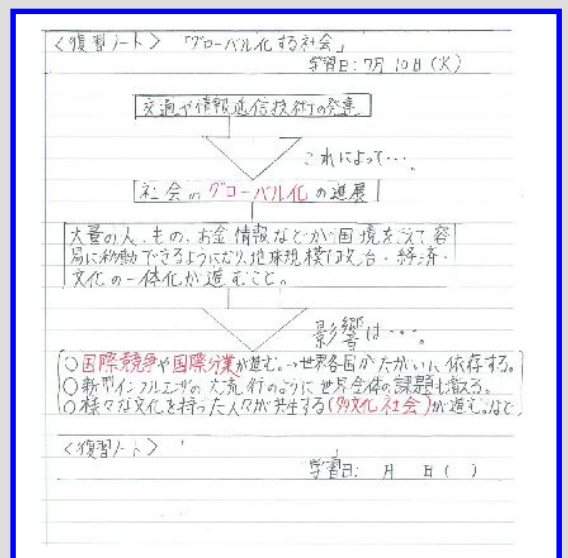 <復習ノート> 「グローバル化する社会」
学習日:7月10日(火)
交通や情報通信技術の発達
これによって・・・。
社会のグローバル化の進展
大量の人、もの、お金、情報などが国境をこえて容
易に移動できるようになり、地球規模で政治・経済・
文化の一体化が進むこと。
影響は・・・。
○国際競争や国際分業が進む。→世界各国がたがいに依存する。
○新型インフルエンザの大流行のように世界全体の課題も増える。
○様々な文化を持った人々が共生する(多文化社会)が進む。など
<復習ノート>
学習日: 月 日( )